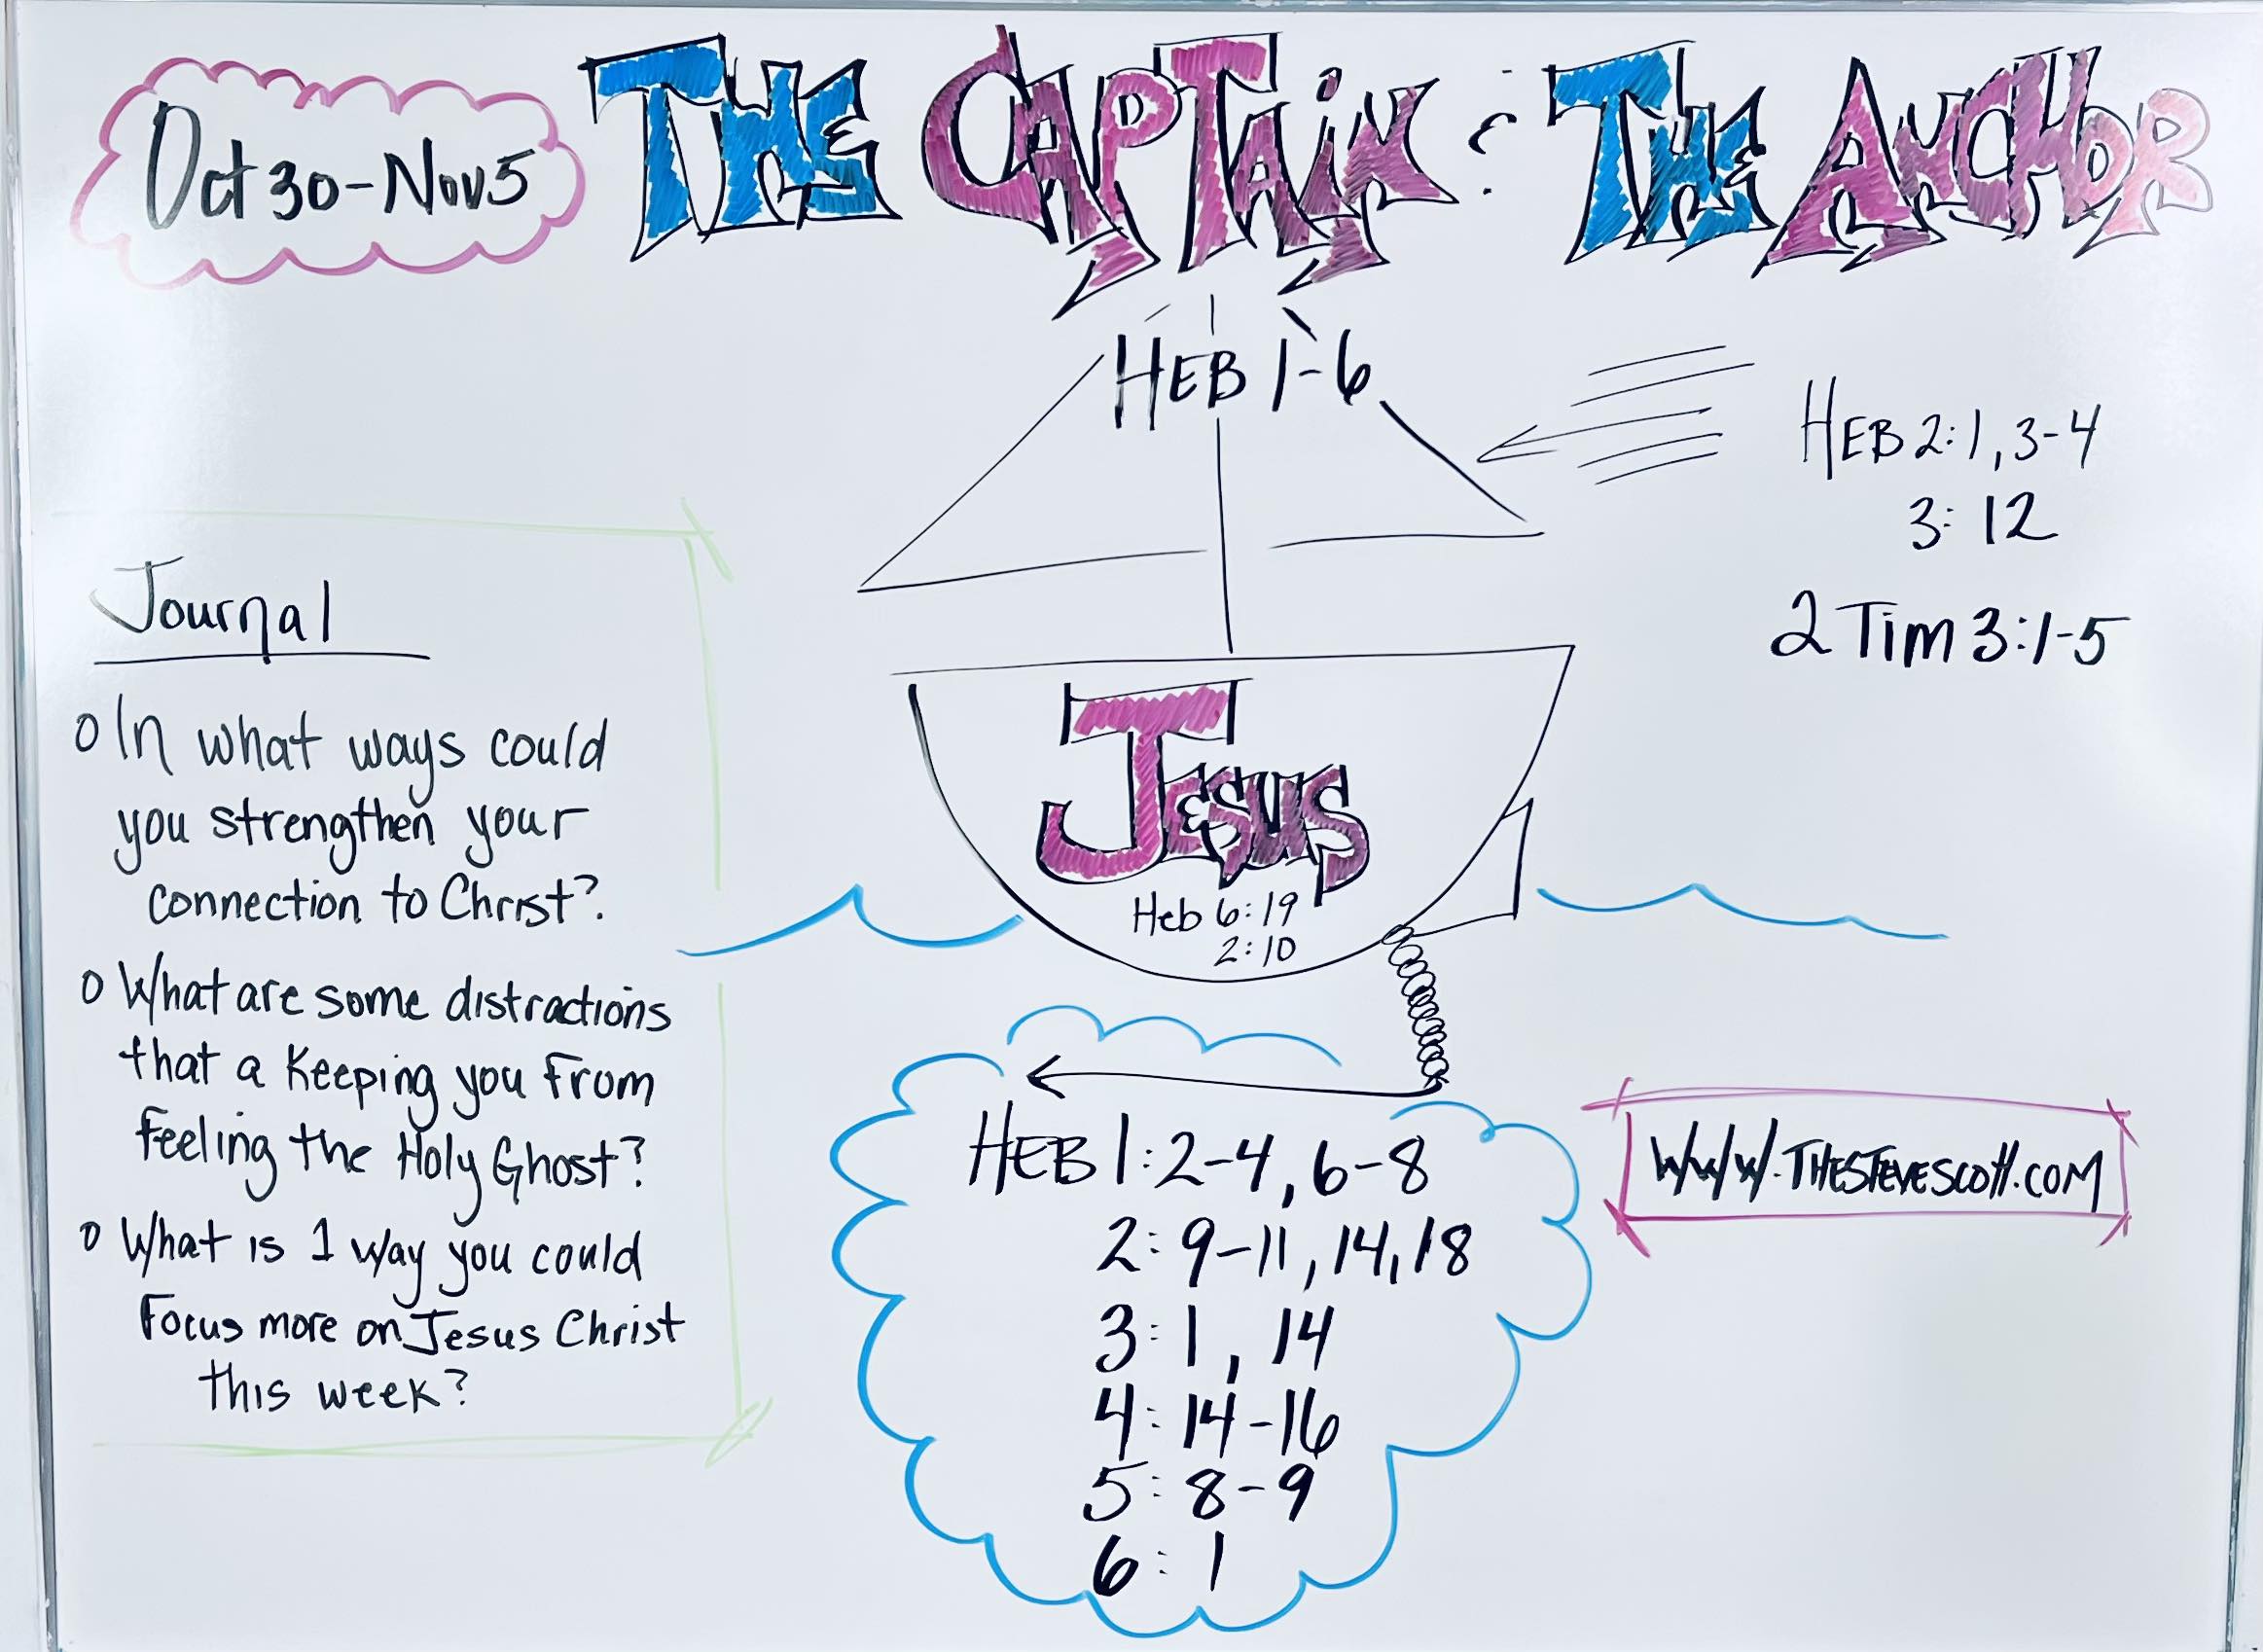 Oct 30-Nov 5
THE CAPTAIN & THE ANCHOR
HEB 1-6
HEB 2:1, 3-4
3: 12
2 Tim 3:1-5
Journal
o In what ways could
you strengthen your
connection to Christ?
o What are some distractions
that a keeping you from
feeling the Holy Ghost?
o What is 1 way you could
Focus more on Jesus Christ
this week?
JESUS
Heb 6:19
2:10
HEB 1:2-4, 6-8
2: 9-11, 14, 18
3: 1, 14
4: 14-16
5: 8-9
6: 1
WWW.THESTEVESCOTT.COM